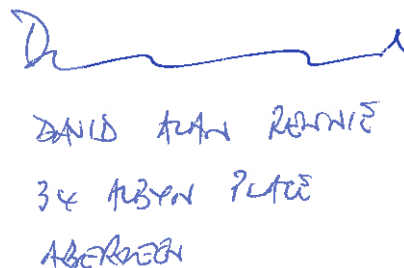 DAVID ALAN RENNIE
34 ALBYN PLACE
ABERDEEN